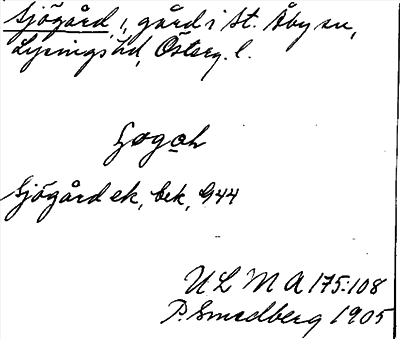 Sjögård, gård i St. Åby sn,
Lysings hd, Österg. l.
Sjögård ek, bek, G44
ULMA 175:108
P. Smedberg 1905